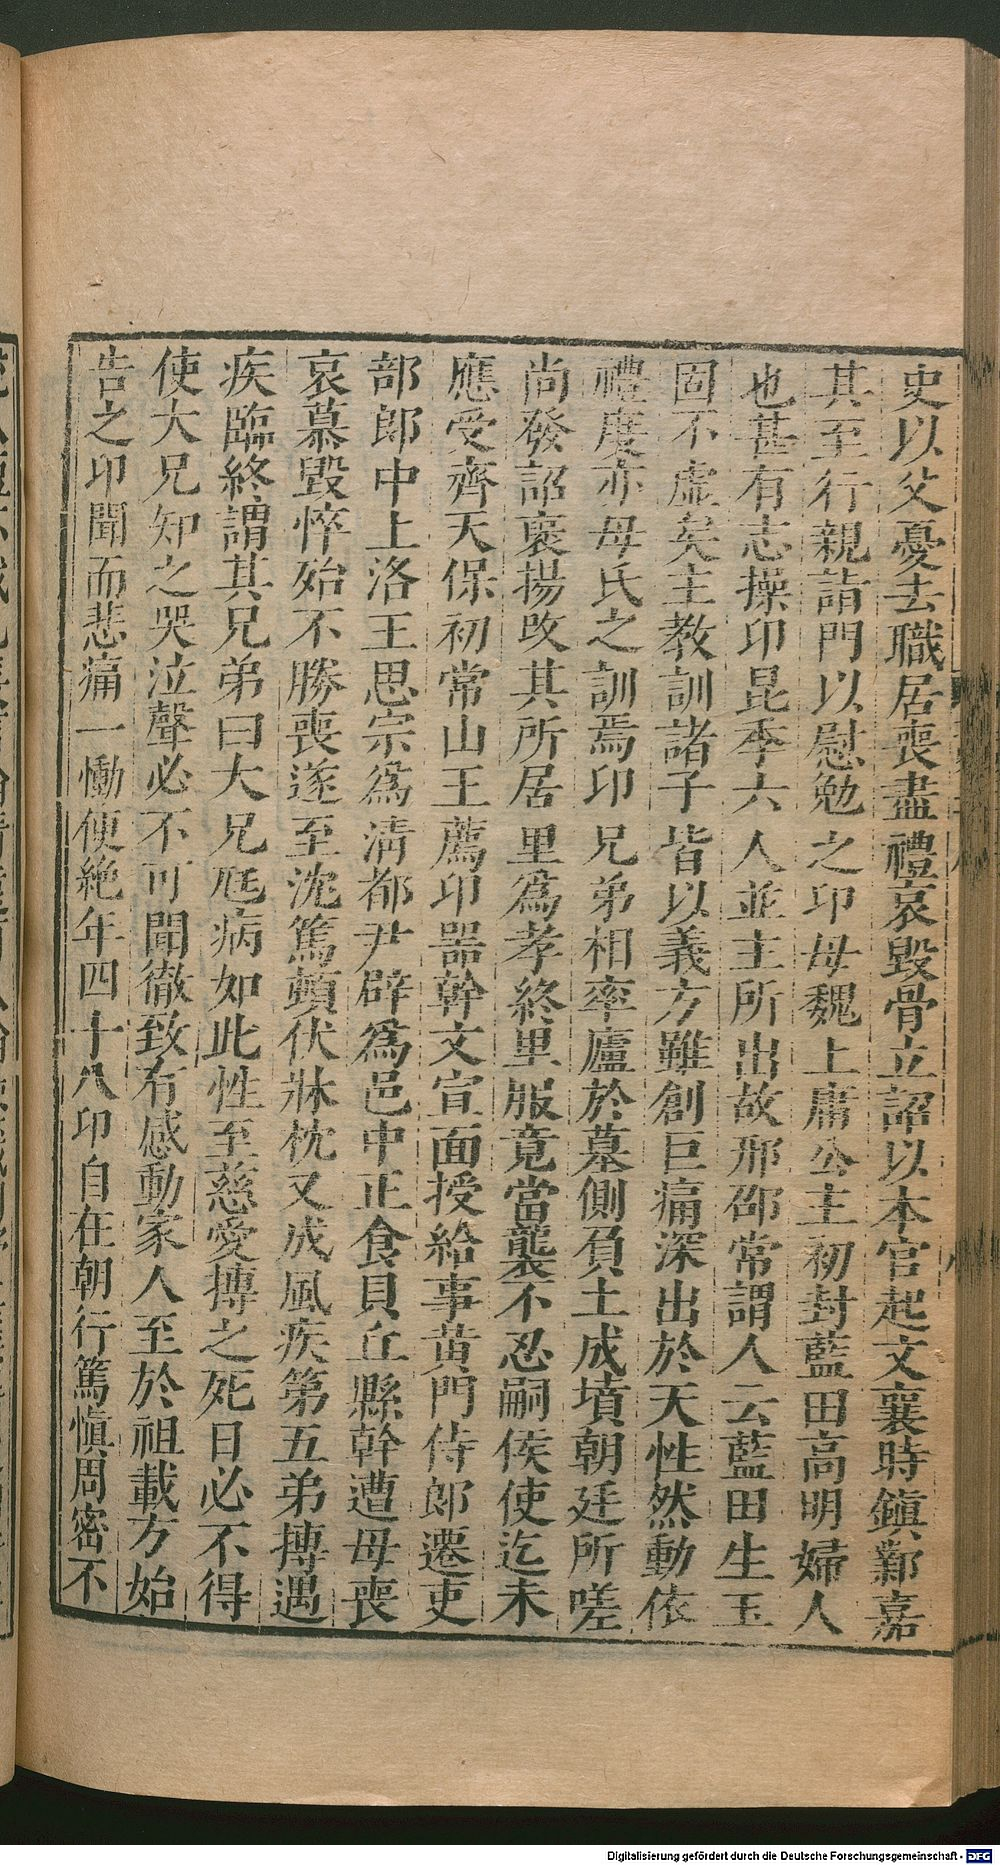 史以父憂去職居喪盡禮哀毀骨立詔以本官起文襄時鎭鄴嘉
其至行親詣門以慰勉之卬母魏上庸公主初封藍田高明婦人
也甚有志操卬昆季六人並主所出故邢邵常謂人云藍田生玉
固不虛矣主教訓諸子皆以義方雖創巨痛深出於天性然動依
禮度亦母氏之訓焉卬兄弟相率廬於墓側負土成墳朝廷所嗟
尚發詔褒揚改其所居里爲孝終里服竟當襲不忍嗣侯使迄未
應受齊天保初常山王薦卬器幹文宣面授給事黄門侍郎遷吏
部郎中上洛王思宗爲淸都尹辟爲邑中正食貝丘縣幹遭母喪
哀慕毀悴殆不勝喪遂至沈篤頓伏牀枕又成風疾第五弟摶遇
疾臨終謂其兄弟曰大兄尫病如此性至慈愛摶之死日必不得
使大兄知之哭泣聲必不可聞徹致有感動家人至於祖載方始
告之卬聞而悲痛一慟便絶年四十八卬自在朝行篤愼周密不
Digitalisierung gefördert durch die Deutsche Forschungsgemeinschaft - DFG